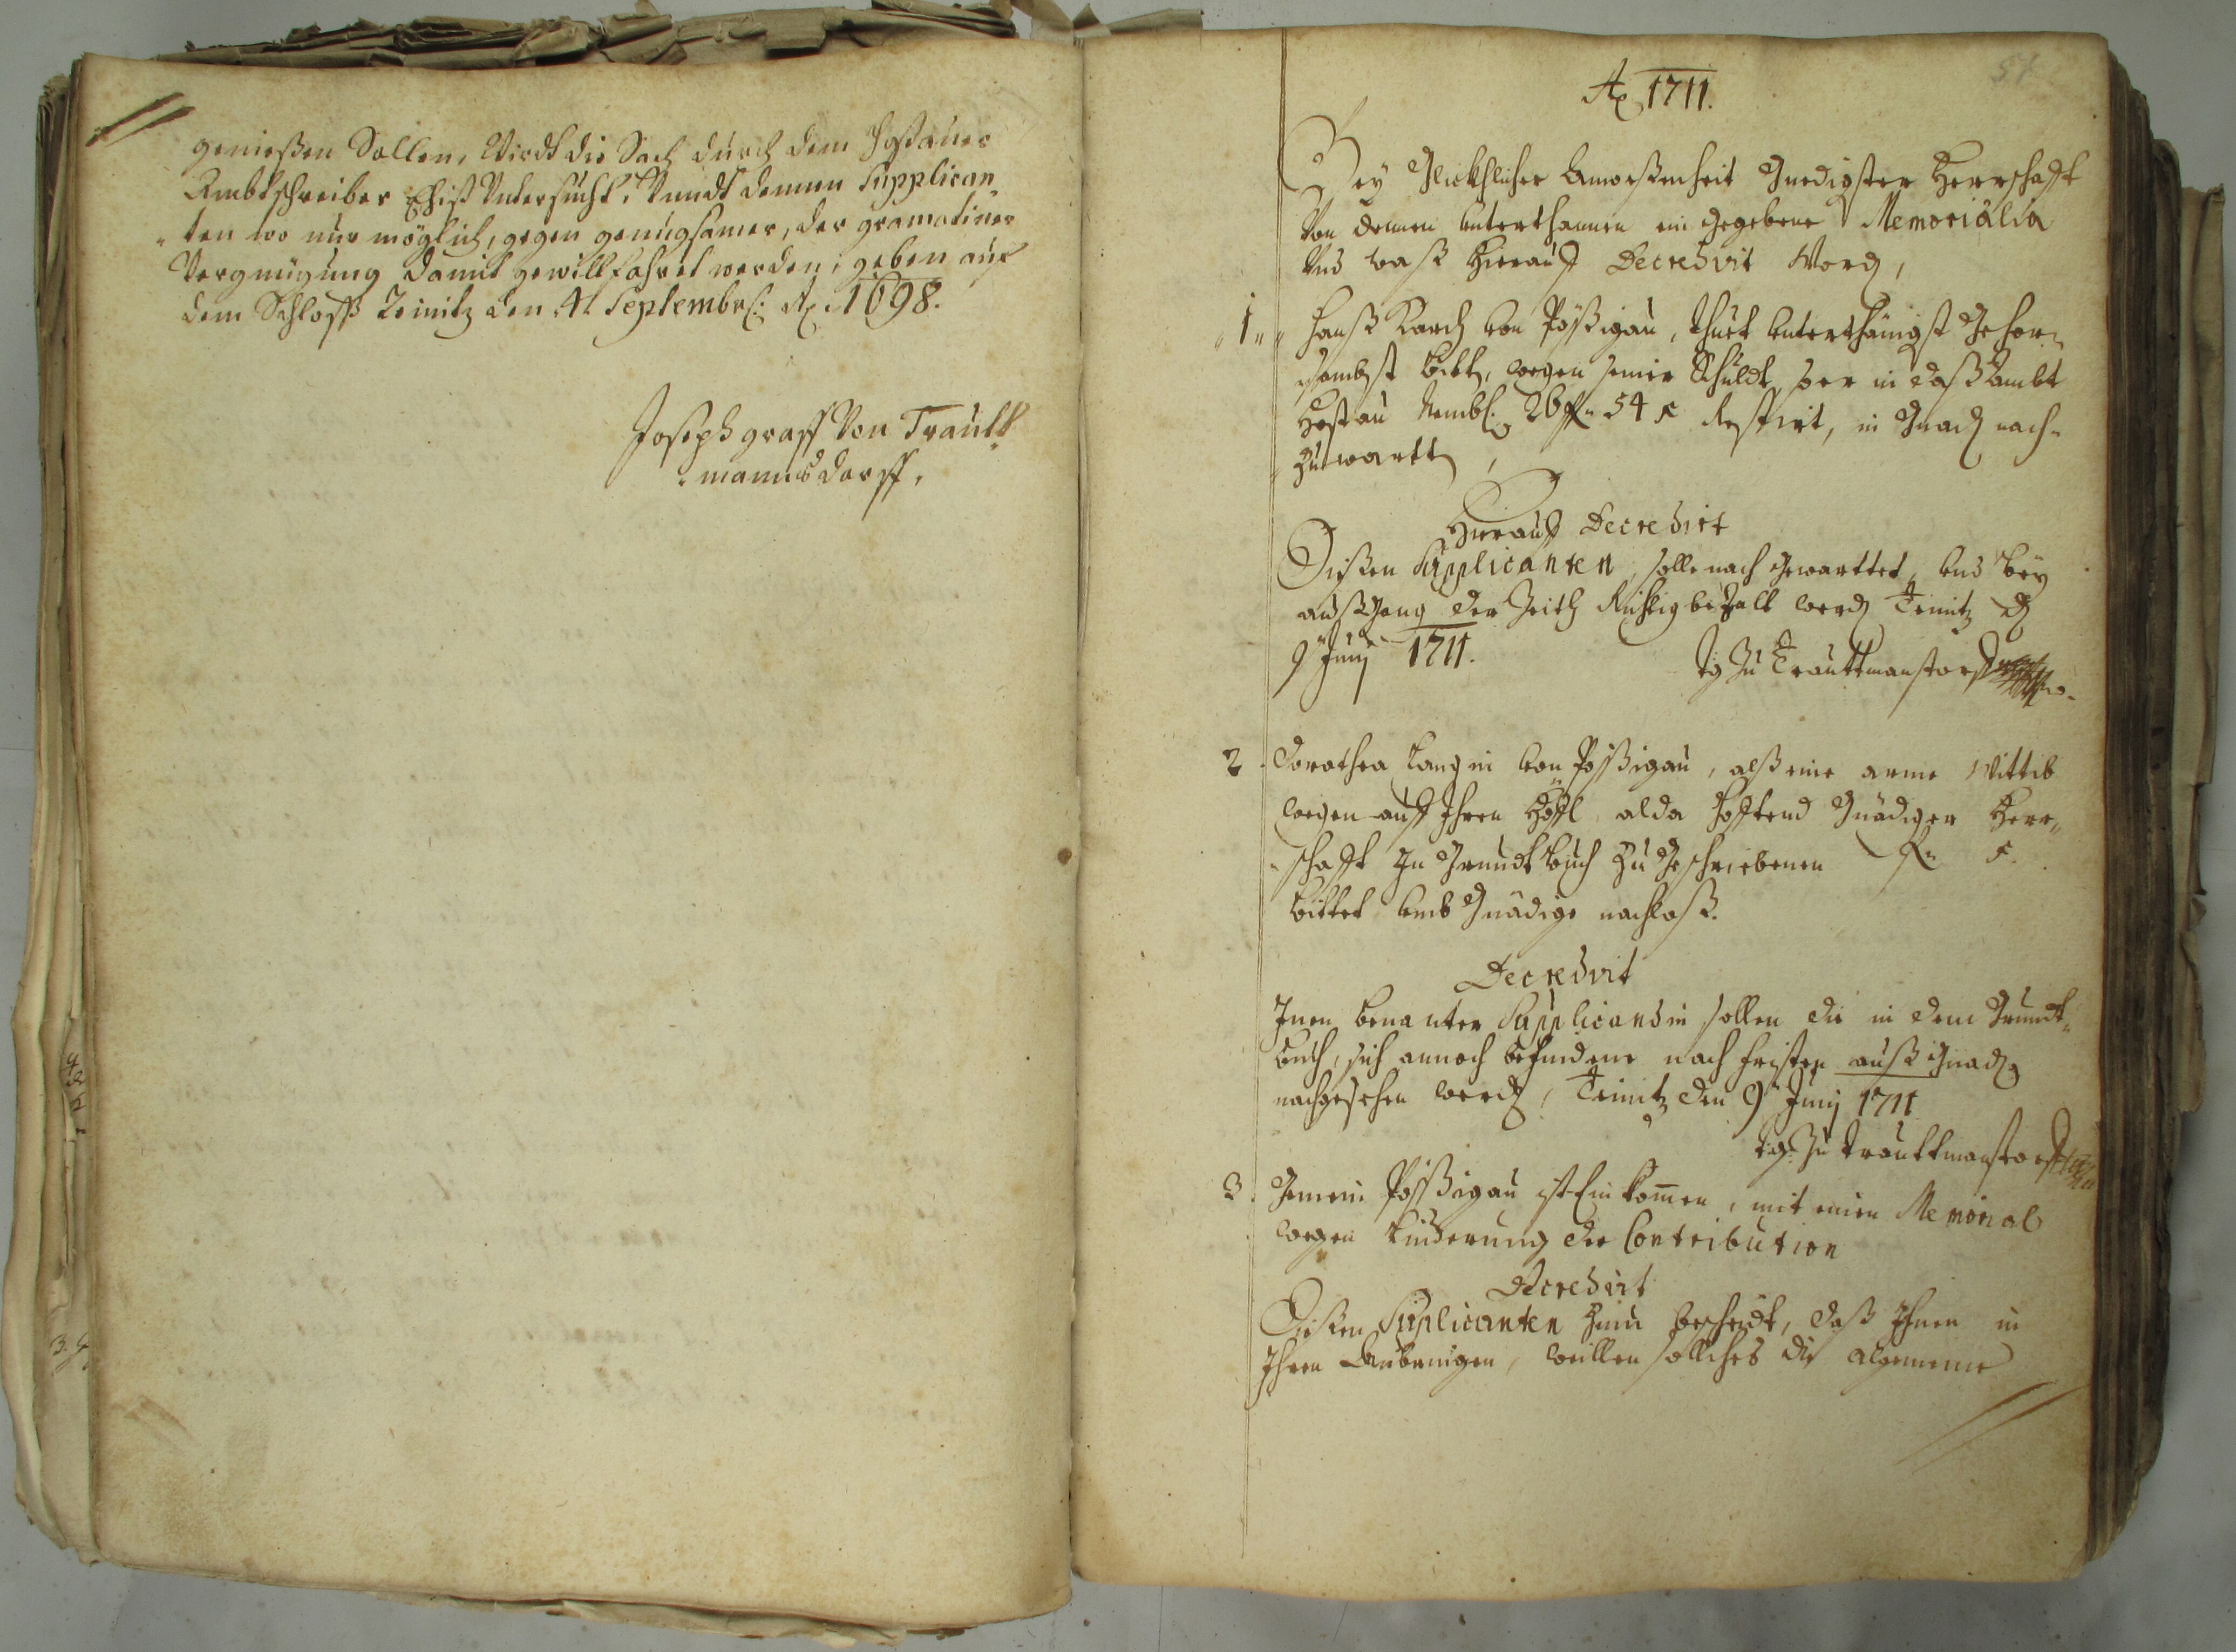 genießen Sollen, Wirdt die Sach durch dem Hostauer
Ambtschreiber Untersucht, Vnndt denen Supplican„
„ten wo nur möglich, gegen genugsamer, der gramatiner
Vergnügung damit gewillfahret werden, geben auf
dem Schloss Teinitz den 4t Septembr: Aõ 1698.
Joseph graff Von Trautt„
„mannsdorff,
51
Aõ 1711.
Bey Glickhlicher Anweßenheit Gnedigster Herrschafft
Von denen unterthannen ein gegebene Memorialia
Vnd waß hierauf Decredvit Word,
„1„ Hanß von Pössigau, thuet unterthänigst Gehor„
sambst bitt, wegen seiner Schuldt, so er in daß Ambt
Hostau Nembl: 26 f 54 x Restirt, in Gnad nach„
zu wartt,
Hierauff Decredirt
Dießen Supplicanten, solle nach gewarttet, und bey
außgang der Zeith Richtig bezalt werd Teinitz d
9t Junij 1711.
zu Trauttmanstorff
2. Dorothea Langin von Pössigau, alß eine arme Wittib
wegen auff Ihren Höffl alda hafftend Gnädiger Herr„
„schafft In Grundtbuch zu geschriebenen f x.
bittet umb Gnädige nachlaß.
Decredvit
Inen benanter Supplicandin sollen die in dem Grundt„
buch, sich annoch befindene nach fristen auß Gnad
nachgesehen werd, Teinitz den 9t Junij 1711
zu Trauttmanstorff
3. Gemein Pössigau ist Ein komen, mit einen Memorial
wegen Linderung der Contribution
Decredirt
Dießen Suplicanten hinn bescheidt, daß Ihnen in
Ihren Anbringen, weillen solliches die algemeine